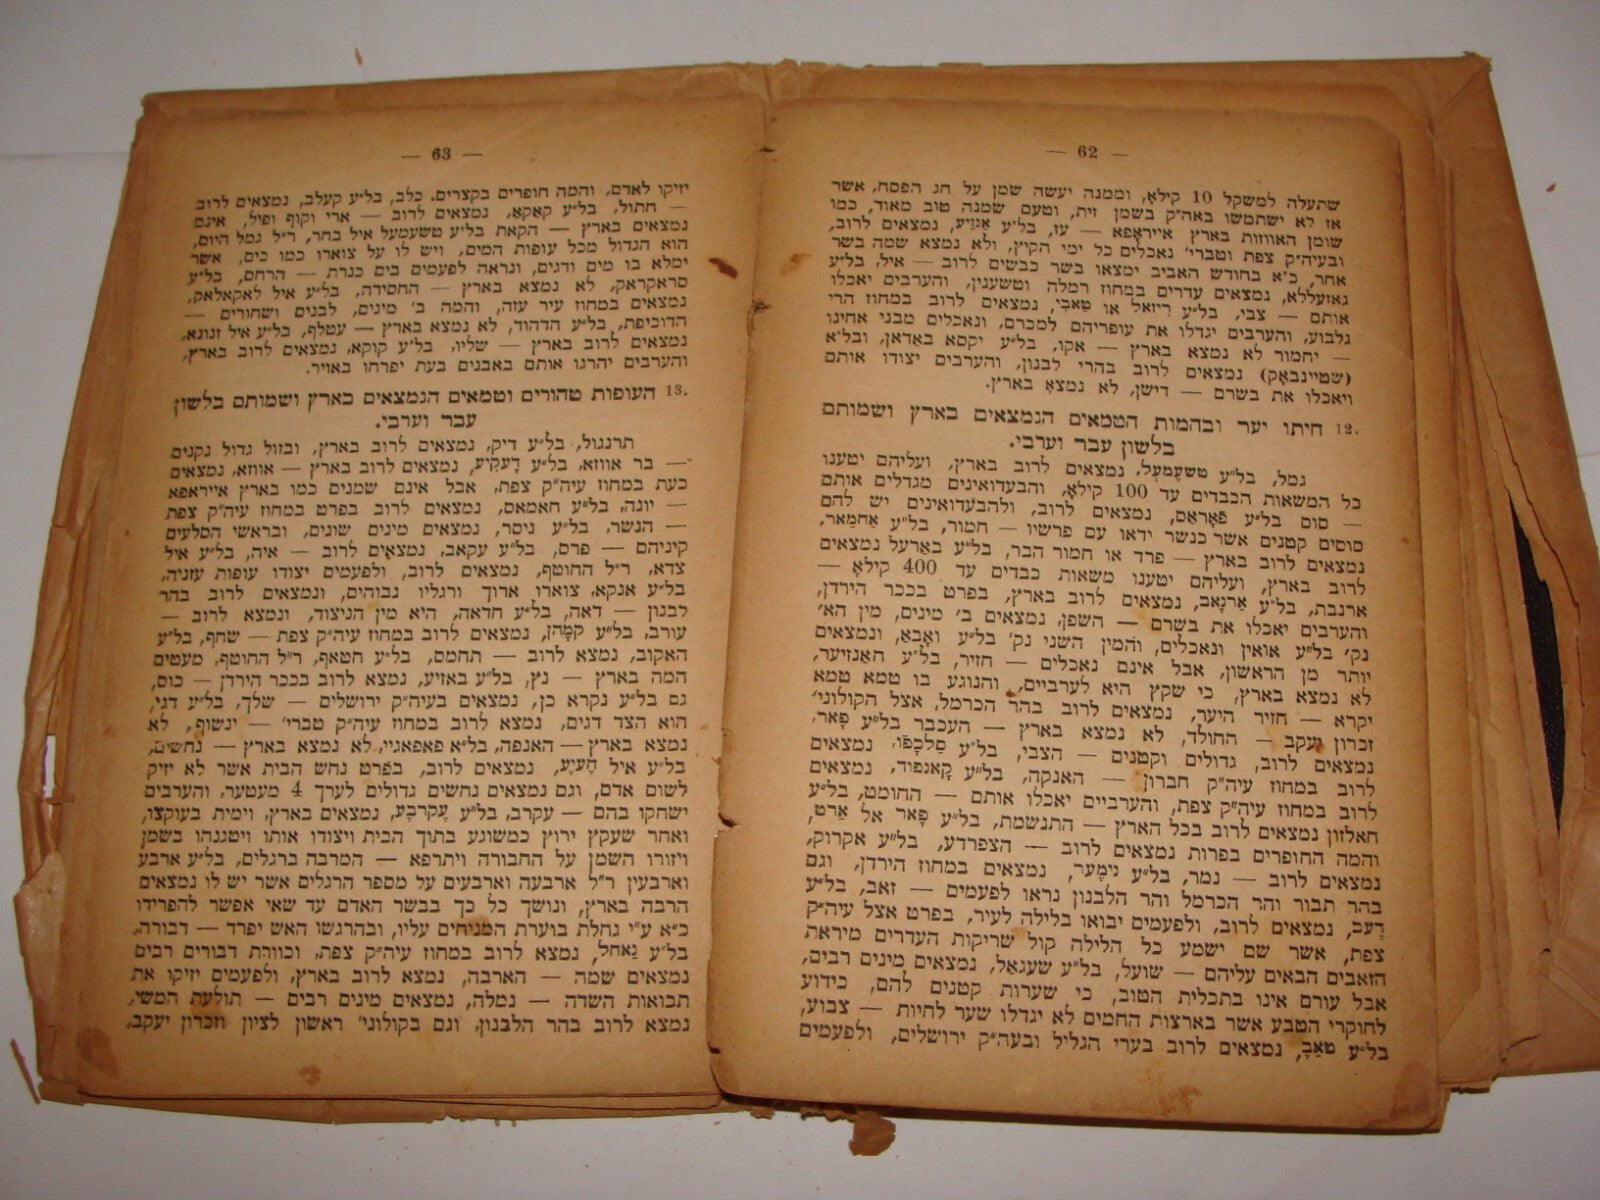 — 62 —
שתעלה למשקל 10 קילא, וממנה יעשה שמן על חג הפסח, אשר
אז לא ישתמשו באה״ק בשמן זית, וטעם שמנה טוב מאוד, כמו
שומן האווזות בארץ אייראפא — עז, בל״ע נמצאים לרוב,
ובעיה״ק צפת וטברי׳ נאכלים כל ימי הקיץ, ולא נמצא שמה בשר
אחר, כ״א בחודש האביב ימצאו בשר כבשים לרוב — איל, בל״ע
גאזעללא, נמצאים עדרים במחוז רמלה וטשענין, והערבים יאכלו
אותם — צבי, בל״ע ריזאל או טאבי, נמצאים לרוב במחוז הרי
גלבוע, והערבים יגדלו את עופריהם למכרם, ונאכלים מבני אחינו
— יחמור לא נמצא בארץ — אקו, בל״ע יקסא באדאן, ובל״א
(שטיינבאק) נמצאים לרוב בהרי לבנון, והערבים יצודו אותם
ויאכלו את בשרם — דישן, לא נמצא בארץ.
12. חיתו יער ובהמות הטמאים הנמצאים בארץ ושמותם
בלשון עבר וערבי.
גמל, בל״ע טשעמעל, נמצאים לרוב בארץ, ועליהם יטענו
כל המשאות הכבדים עד 100 קילא, והבעדואינים מגדלים אותם
— סוס בל״ע פאראס, נמצאים לרוב, ולהבעדואינים יש להם
סוסים קטנים אשר כנשר ידאו עם פרשיו — חמור, בל״ע אחמאר,
נמצאים לרוב בארץ — פרד או חמור הבר, בל״ע באדעל נמצאים
לרוב בארץ, ועליהם יטענו משאות כבדים עד 400 קילא —
ארנבת, בל״ע ארנאב, נמצאים לרוב בארץ, בפרט בככר הירדן,
והערבים יאכלו את בשרם — השפן, נמצאים ב׳ מינים, מין הא׳
נק׳ בל״ע אואין ונאכלים, והמין השני נק׳ בל״ע ואבא, ונמצאים
יותר מן הראשון, אבל אינם נאכלים — חזיר, בל״ע חאנזיער,
לא נמצא בארץ, כי שקץ היא לערביים, והנוגע בו טמא טמא
יקרא — חזיר היער, נמצאים לרוב בהר הכרמל, אצל הקולוני׳
זכרון יעקב — החולד, לא נמצא בארץ — העכבר בל״ע פאר,
נמצאים לרוב, גדולים וקטנים — הצבי, בל״ע נמצאים
לרוב במחוז עיה״ק חברון — האנקה, בל״ע קאנפוד, נמצאים
לרוב במחוז עיה״ק צפת, והערביים יאכלו אותם — החומט, בל״ע
חאלזון נמצאים לרוב בכל הארץ — התנשמת, בל״ע פאר אל ארט,
והמה החופרים בפרות נמצאים לרוב — הצפרדע, בל״ע אקרוק,
נמצאים לרוב — נמר, בל״ע נימער, נמצאים במחוז הירדן, וגם
בהר תבור והר הכרמל והר הלבנון נראו לפעמים — זאב, בל״ע
דעב, נמצאים לרוב, ולפעמים יבואו בלילה לעיר, בפרט אצל עיה״ק
צפת, אשר שם ישמע כל הלילה קול שריקות העדרים מיראת
הזאבים הבאים עליהם — שועל, בל״ע שעגאל, נמצאים מינים רבים,
אבל עורם אינו בתכלית הטוב, כי שערות קטנים להם, כידוע
לחוקרי הטבע אשר בארצות החמים לא יגדלו שער לחיות — צבוע,
בל״ע טאב, נמצאים לרוב בערי הגליל ובעה״ק ירושלים, ולפעמים
— 63 —
יזיקו לאדם, והמה חופרים בקצרים. כלב, בל״ע קעלב, נמצאים לרוב
— חתול, בל״ע קאקא, נמצאים לרוב — ארי וקוף ופיל, אינם
נמצאים בארץ — הקאת בל״ע טשעמעל איל בחר, ר״ל גמל היום,
הוא הגדול מכל עופות המים, ויש לו על צוארו כמו כים, אשר
ימלא בו מים ודגים, ונראה לפעמים בים כנרת — הרחם, בל״ע
סראקראק, לא נמצא בארץ — החסידה, בל״ע איל לאקאלאק,
נמצאים במחוז עיר עזה, והמה ב׳ מינים, לבנים ושחורים —
הדוכיפת, בל״ע הדהוד, לא נמצא בארץ — עטלף, בל״ע איל זנונא,
נמצאים לרוב בארץ — שליו, בל״ע קוקא, נמצאים לרוב בארץ,
והערבים יהרגו אותם באבנים בעת יפרחו באויר.
13. העופות טהורים וטמאים הנמצאים בארץ ושמותם בלשון
עבר וערבי.
תרנגול, בל״ע דיק, נמצאים לרוב בארץ, ובזול גדול נקנים
— בר אווזא, בל״ע דעקיע, נמצאים לרוב בארץ — אווזא, נמצאים
כעת במחוז עיה״ק צפת, אבל אינם שמנים כמו בארץ אייראפא
— יונה, בל״ע חאמאם, נמצאים לרוב בפרט במחוז עיה״ק צפת
— הנשר, בל״ע ניסר, נמצאים מינים שונים, ובראשי הסלעים
קיניהם — פרס, בל״ע עקאב, נמצאים לרוב — איה, בל״ע איל
צדא, ר״ל החוטף, נמצאים לרוב, ולפעמים יצודו עופות עזניה,
בל״ע אנקא, צוארו ארוך ורגליו גבוהים, ונמצאים לרוב בהר
לבנון — דאה, בל״ע חדאה, היא מין הניצוד, ונמצא לרוב —
עורב, בל״ע נמצאים לרוב במחוז עיה״ק צפת — שחף, בל״ע
האקוב, נמצא לרוב — תחמס, בל״ע חטאף, ר״ל החוטף, מעטים
המה בארץ — נץ, בל״ע באזיע, נמצא לרוב בככר הירדן — כוס,
גם בל״ע נקרא כן, נמצאים בעיה״ק ירושלים — שלך, בל״ע דגי,
הוא הצד דגים, נמצא לרוב במחוז עיה״ק טברי׳ — ינשוף, לא
נמצא בארץ — האנפה, בל״א פאפאגיי, לא נמצא בארץ — נחשים,
בל״ע איל חעיע, נמצאים לרוב, בפרט נחש הבית אשר לא יזיק
לשום אדם, וגם נמצאים נחשים גדולים לערך 4 מעטער, והערבים
ישחקו בהם — עקרב, בל״ע עקרבע, נמצאים בארץ, וימית בעוקצו,
ואחר שעקץ ירוץ כמשוגע בתוך הבית ויצודו אותו ויטגנהו בשמן
ויזורו השמן על החבורה ויתרפא — המרבה ברגלים, בל״ע ארבע
וארבעין ר״ל ארבעה וארבעים על מספר הרגלים אשר יש לו נמצאים
הרבה בארץ, ונושך כל כך בבשר האדם עד שאי אפשר להפרידו
כ״א ע״י גחלת בוערת המניחים עליו, ובהרגשו האש יפרד — דבורה,
בל״ע נאחל, נמצא לרוב במחוז עיה״ק צפת, וכוורת דבורים רבים
נמצאים שמה — הארבה, נמצא לרוב בארץ, ולפעמים יזיקו את
תבואות השדה — נמלה, נמצאים מינים רבים — תולעת המשי,
נמצא לרוב בהר הלבנון, וגם בקולוני׳ ראשון לציון וזכרון יעקב,